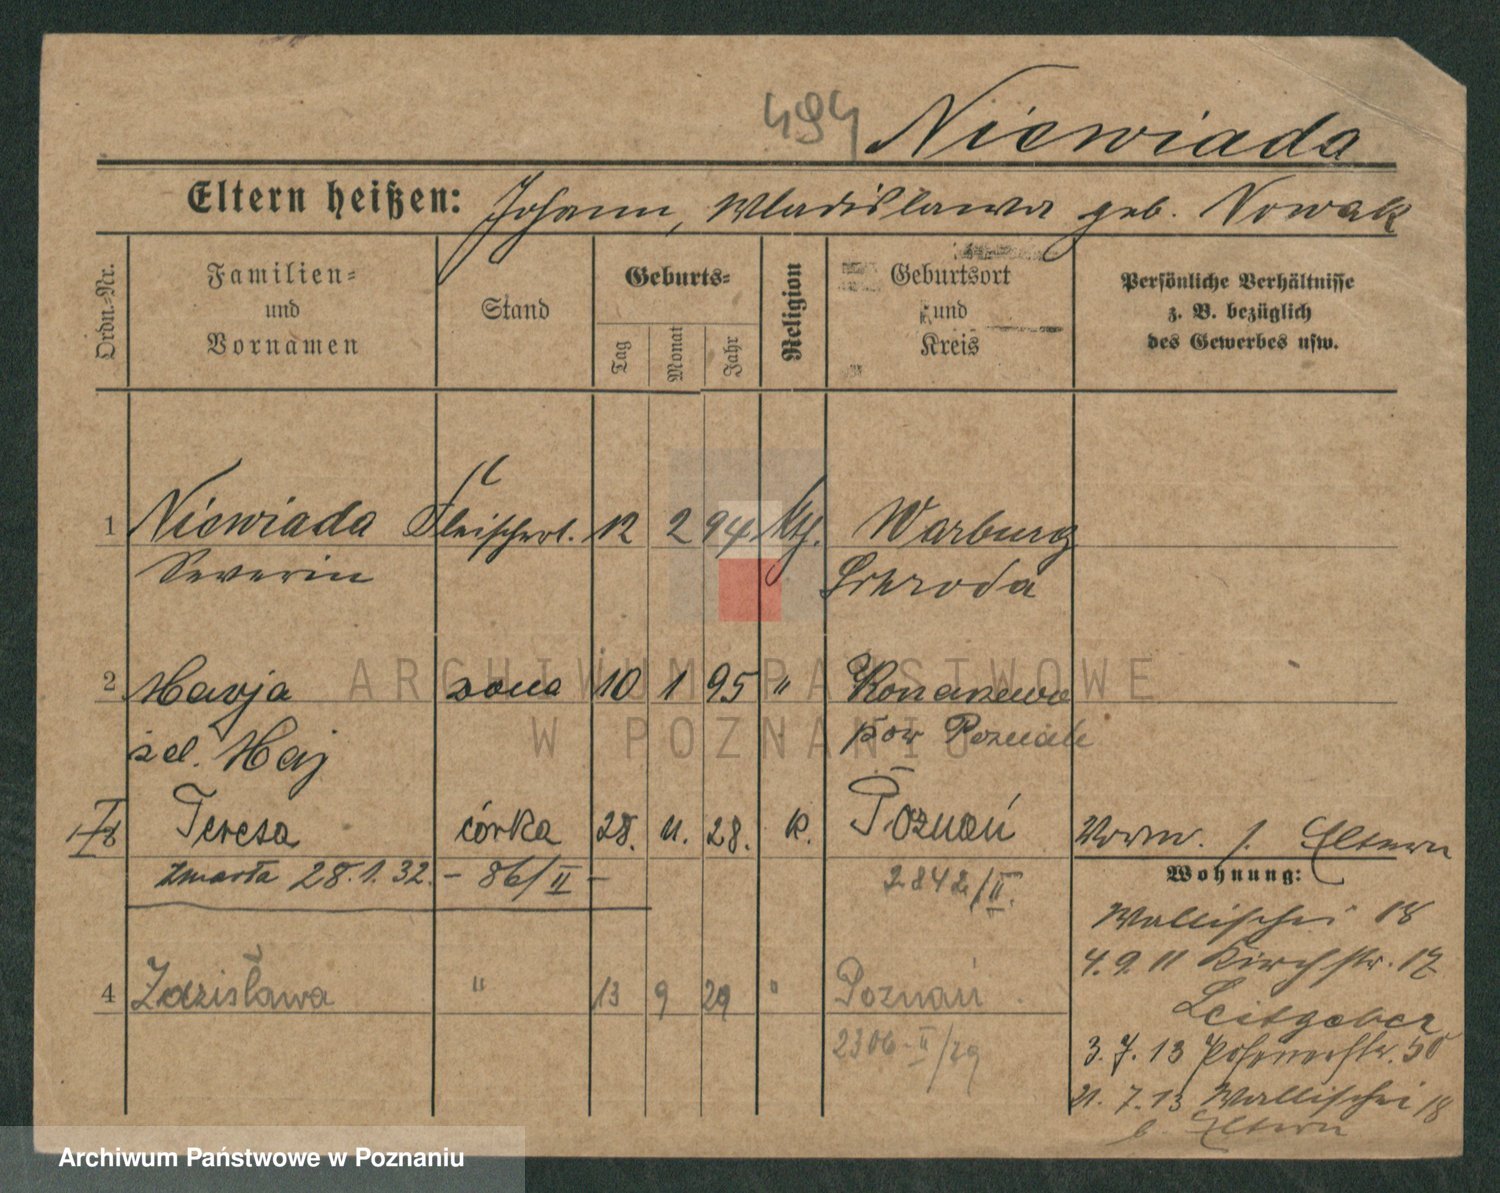 494 Niewiada
Eltern heißen: Johann, Wladislawa geb. Nowak
Ordn.-Nr.
Familien- und Vornamen
Stand
Geburts-
Tag
Monat
Jahr
Religion
Geburtsort und Kreis
Persönliche Verhältnisse
z. B. bezüglich
des Gewerbes usw.
1 Niewiada Fleischerl. 12 2 94 kth. Warburg
Severin Schroda
2 Marja żona 10 1 95 " Konarzewo
zd. Maj pow Poznań
Teresa córka 28. 11. 28. k. Poznań
zmarła 28.1.32. - 86/II - 2842/II.
4 Zdzisława " 13 9 29 " Poznań
2306-II/29
Vorm. s. Eltern
Wohnung:
Wallischei 18
4.9.11 Kirchstr. 17
Leitgeber
3.7.13 Posenerstr. 50
21.7.13 Wallischei 18
b. Eltern
ARCHIWUM PAŃSTWOWE
W POZNANIU
Archiwum Państwowe w Poznaniu